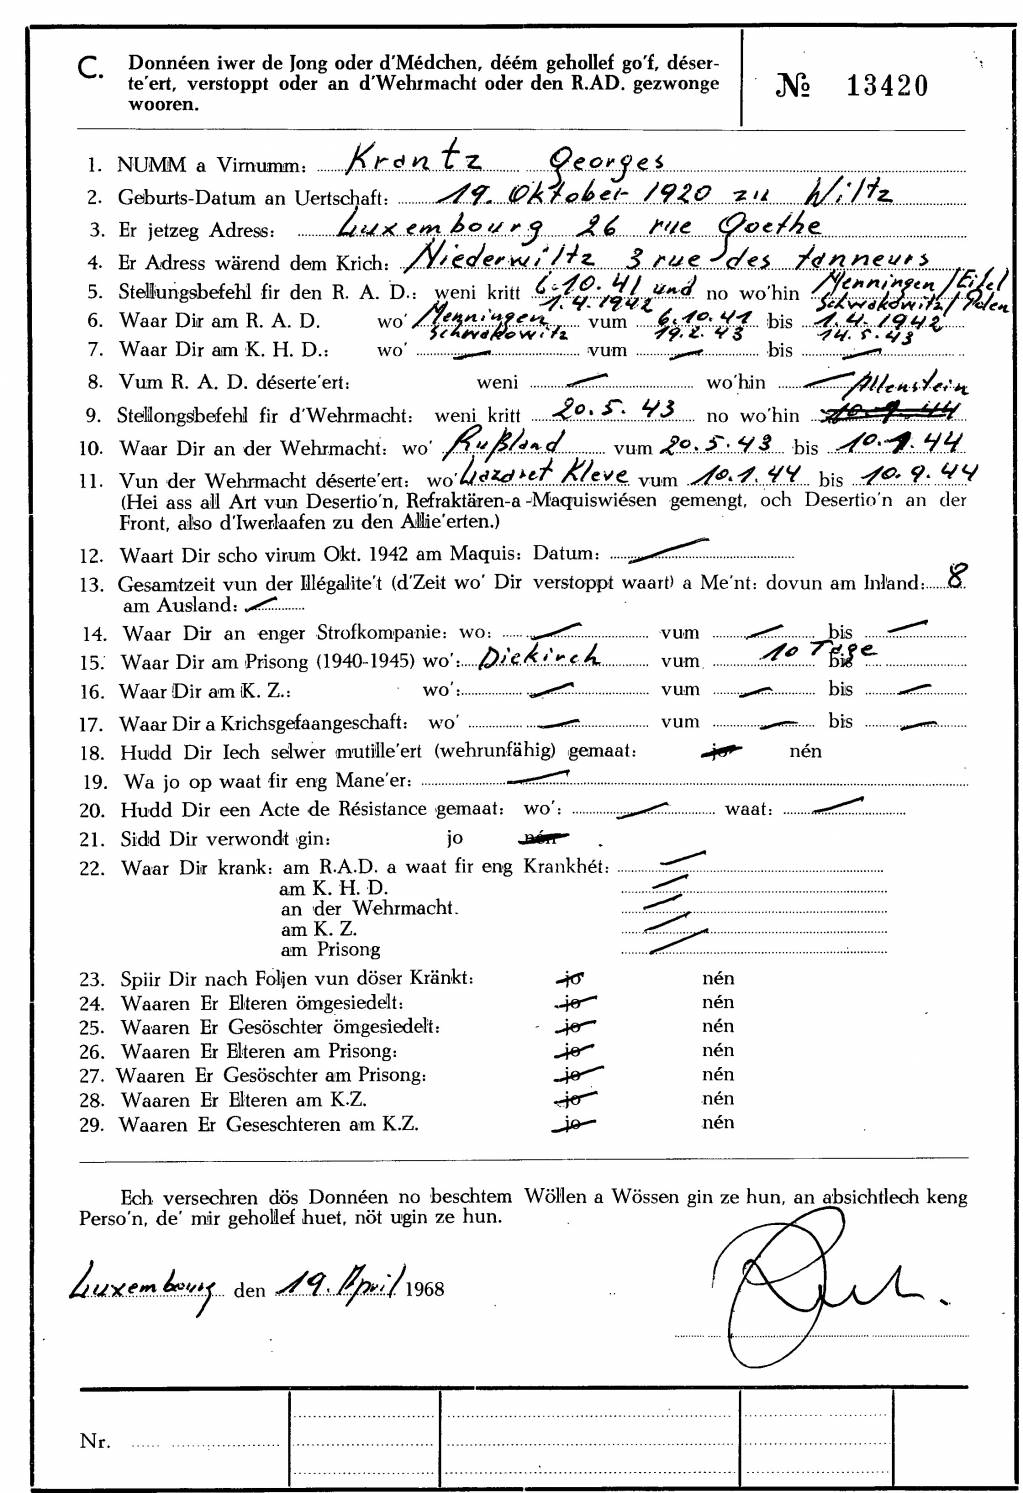 C. Donnéen iwer de Jong oder d'Médchen, déém gehollef go'f, déser-
te'ert, verstoppt oder an d'Wehrmacht oder den R.AD. gezwonge
wooren.
№ 13420
1. NUMM a Virnumm: Krantz Georges
2. Geburts-Datum an Uertschaft: 19. Oktober 1920 zu Wiltz
3. Er jetzeg Adress: Luxembourg 26 rue Goethe
4. Er Adress wärend dem Krich: Niederwiltz 3 rue des tanneurs
5. Stellungsbefehl fir den R. A. D.: weni kritt 6.10.41 und 1.4.1942 no wo'hin Menningen/Eifel Schwakowitz/Polen
6. Waar Dir am R. A. D. wo' Menningen Schwakowitz vum 6.10.41 19.2.43 bis 1.4.1942 14.5.43
7. Waar Dir am K. H. D.: wo' — vum — bis —
8. Vum R. A. D. déserte'ert: weni — wo'hin —
9. Stellongsbefehl fir d'Wehrmacht: weni kritt 20.5.43 no wo'hin Allenstein
10. Waar Dir an der Wehrmacht: wo' Rußland vum 20.5.43 bis 10.1.44
11. Vun der Wehrmacht déserte'ert: wo' Lazaret Kleve vum 10.1.44 bis 10.9.44
(Hei ass all Art vun Desertio'n, Refraktären-a -Maquiswiésen gemengt, och Desertio'n an der
Front, also d'Iwerlaafen zu den Allie'erten.)
12. Waart Dir scho virum Okt. 1942 am Maquis: Datum: —
13. Gesamtzeit vun der Illégalite't (d'Zeit wo' Dir verstoppt waart) a Me'nt: dovun am Inland: 8
am Ausland: —
14. Waar Dir an enger Strofkompanie: wo: — vum — bis —
15. Waar Dir am Prisong (1940-1945) wo': Diekirch vum 10 Tage bis
16. Waar Dir am K. Z.: wo': — vum — bis —
17. Waar Dir a Krichsgefaangeschaft: wo' — vum — bis —
18. Hudd Dir Iech selwer mutille'ert (wehrunfähig) gemaat: jo nén
19. Wa jo op waat fir eng Mane'er: —
20. Hudd Dir een Acte de Résistance gemaat: wo': — waat: —
21. Sidd Dir verwondt gin: jo nén
22. Waar Dir krank: am R.A.D. a waat fir eng Krankhét: —
am K. H. D. —
an der Wehrmacht. —
am K. Z. —
am Prisong —
23. Spiir Dir nach Foljen vun döser Kränkt: jo nén
24. Waaren Er Elteren ömgesiedelt: jo nén
25. Waaren Er Gesöschter ömgesiedelt: jo nén
26. Waaren Er Elteren am Prisong: jo nén
27. Waaren Er Gesöschter am Prisong: jo nén
28. Waaren Er Elteren am K.Z. jo nén
29. Waaren Er Geseschteren am K.Z. jo nén
Ech versechren dös Donnéen no beschtem Wöllen a Wössen gin ze hun, an absichtlech keng
Perso'n, de' mir gehollef huet, nöt ugin ze hun.
Luxembourg den 19. April 1968
Nr.